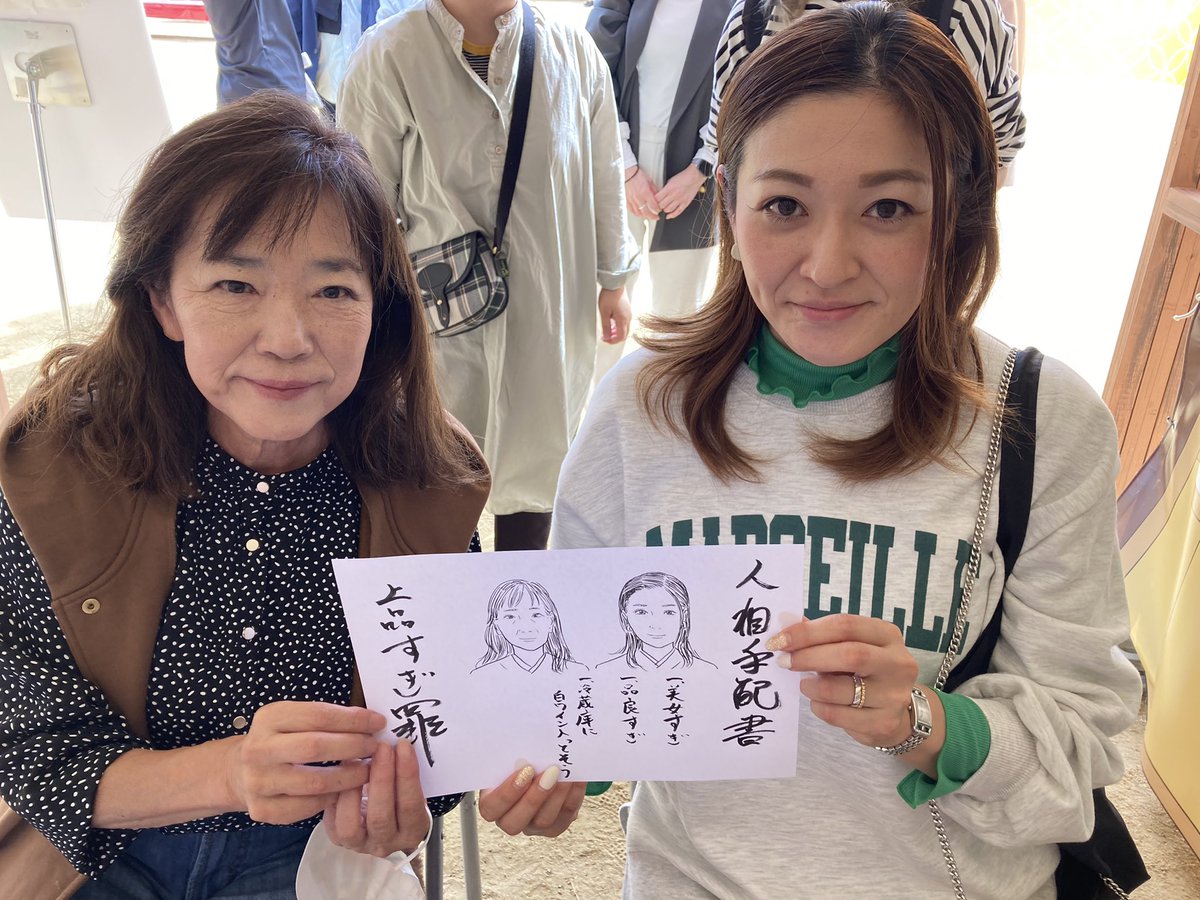 人相手配書
一、美女すぎ
一、品良すぎ
一、冷蔵庫に
白ワイン入ってそう
上品すぎ罪
MARSEILLE